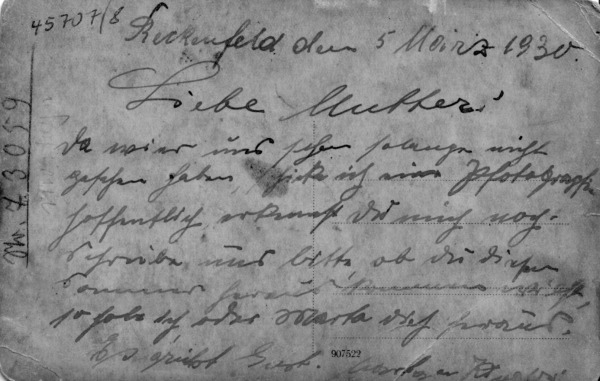 45707/8
Reckenfeld den 5 März 1930.
Liebe Mutter!
Da wier uns schon solange nicht
gesehen haben, schike ich eine Photographie
hoffentlich erkennst Du mich noch.
Schreibe uns bitte, ob du diesen
Sommer heraus kommen
so hole ich oder Marta dich heraus.
Es grüßt Euch
907522
No. 73059